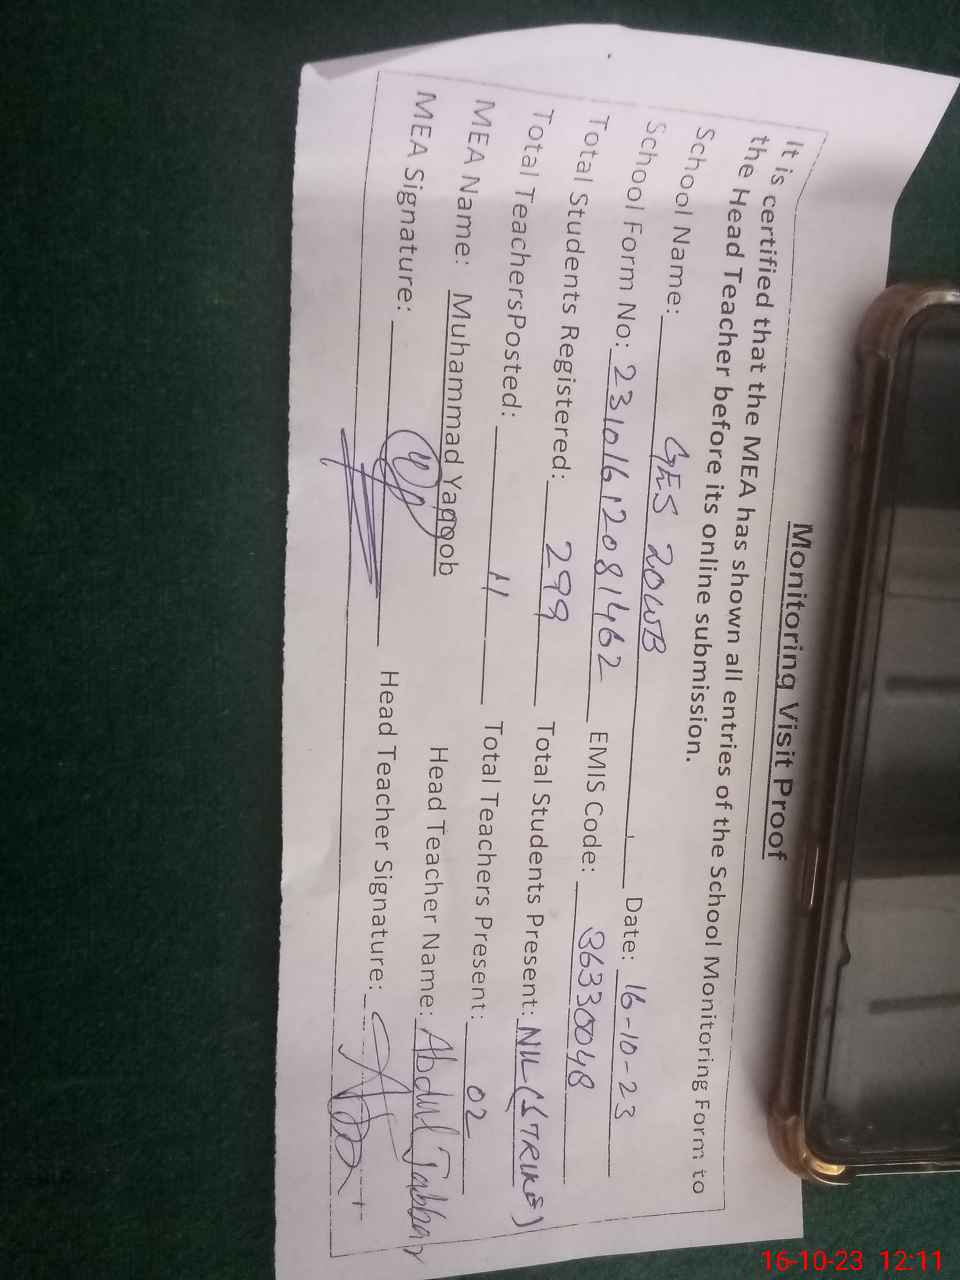 Monitoring Visit Proof
It is certified that the MEA has shown all entries of the School Monitoring Form to
the Head Teacher before its online submission.
School Name: GES 20WB Date: 16-10-23
School Form No: 23101612081462 EMIS Code: 36330048
Total Students Registered: 299 Total Students Present: NIL (STRIKE)
Total TeachersPosted: 11 Total Teachers Present: 02
MEA Name: Muhammad Yaqoob Head Teacher Name: Abdul Jabbar
MEA Signature: Head Teacher Signature:
16-10-23 12:11